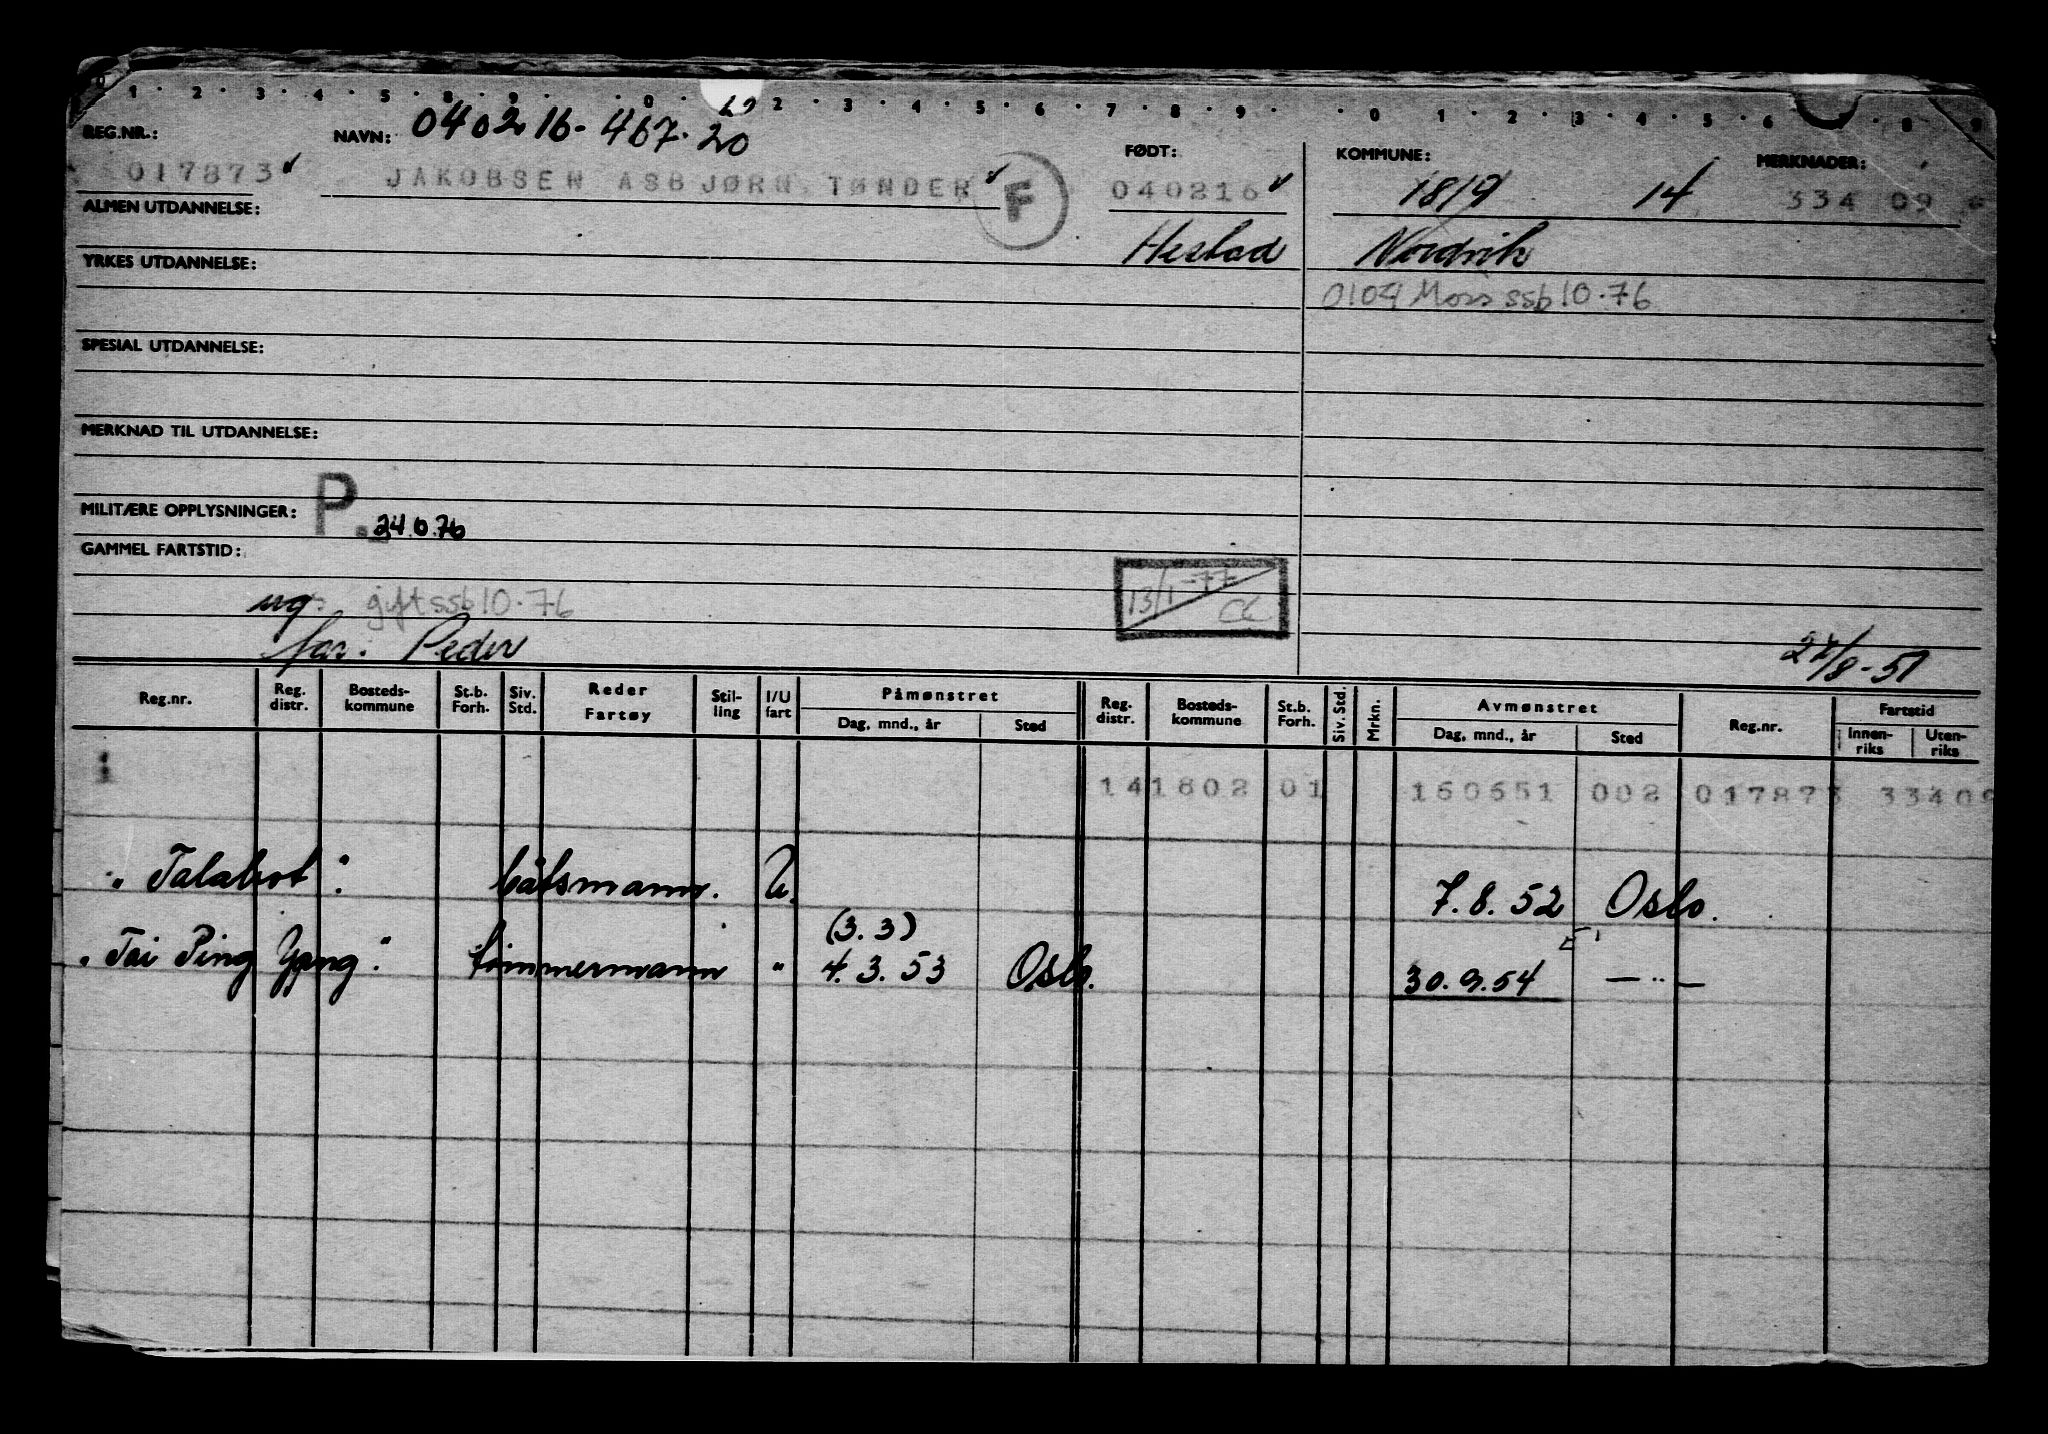 1 · 2 · 3 · 4 · 5 · 8 · 9 · 0 · 2 · 3 · 4 · 5 · 6 · 7 · 8 · 9 · 0 1 · 2 · 3 · 5 · 6 · 8 · 9
REG.NR.: NAVN: 040216-467.20 FØDT: KOMMUNE: MERKNADER:
017873 JAKOBSEN ASBJØRN TØNDER F 040216 1819 14 334 09
ALMEN UTDANNELSE: Hestad Nordvik
YRKES UTDANNELSE:
0104 Moss ssb 10.76
SPESIAL UTDANNELSE:
MERKNAD TIL UTDANNELSE:
MILITÆRE OPPLYSNINGER: P. 24.6.76
GAMMEL FARTSTID:
ug. gift ssb 10.76 13/1-77
far: Peder
Reg.nr. Reg. distr. Bosteds-kommune St.b. Forh. Siv. Std. Reder Fartøy Stil-ling I/U fart Påmønstret Dag, mnd., år Sted Reg. distr. Bosteds-kommune St.b. Forh. Siv. Std. Mrkn. Avmønstret Dag, mnd., år Sted Reg.nr. Fartstid Innen-riks Uten-riks
141802 01 160651 002 017873 33409
"Talabot". båtsmann. U. 7.8.52 Oslo.
(3.3)
"Tai Ping Yang". tømmermann " 4.3.53 Oslo. 30.9.54 — " —